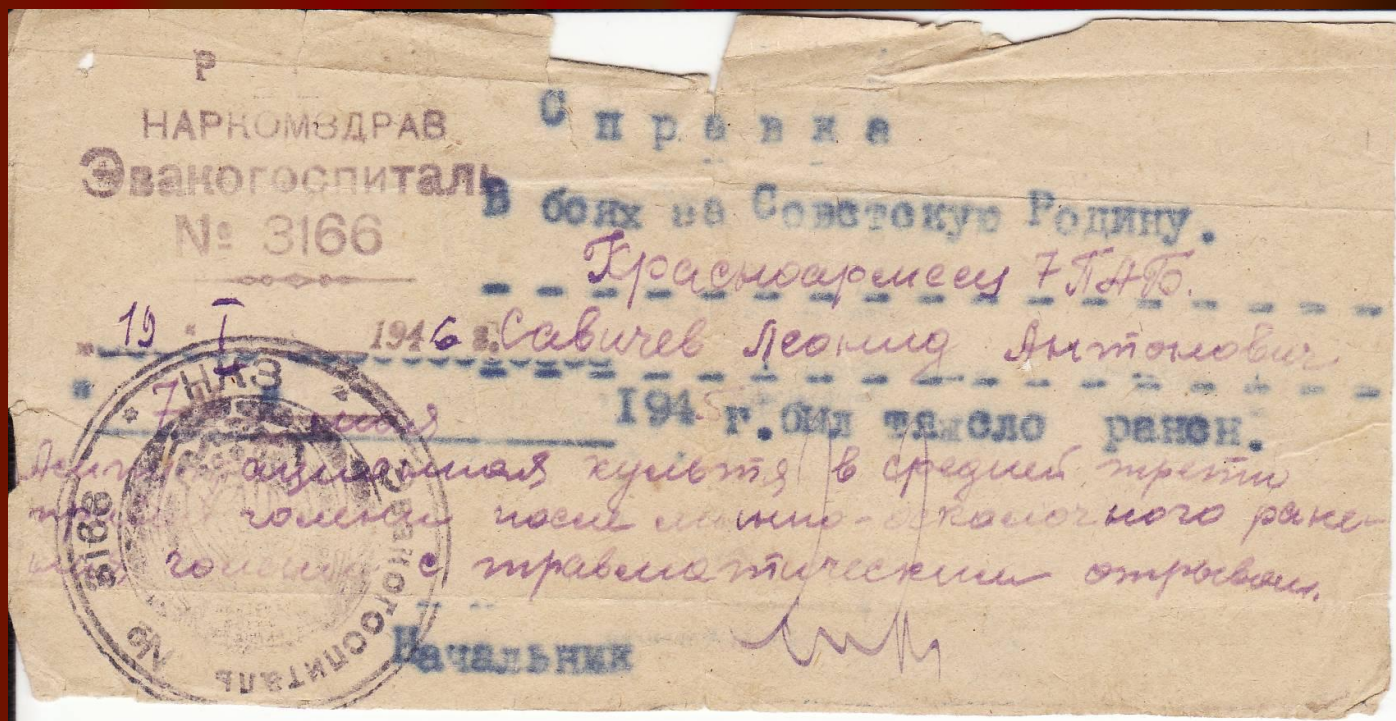 Р
НАРКОМЗДРАВ
Эвакогоспиталь
№ 3166
19 I 1946 г.
Справка
В боях за Советскую Родину.
Красноармеец 7 ПАБ.
Савичев Леонид Антонович
7 1945 г. был тяжело ранен.
Ампутационная культя в средней трети
голени после минно-осколочного ране-
голени с травматическим отрывом.
Начальник
НКЗ
Эвакогоспиталь №
3166